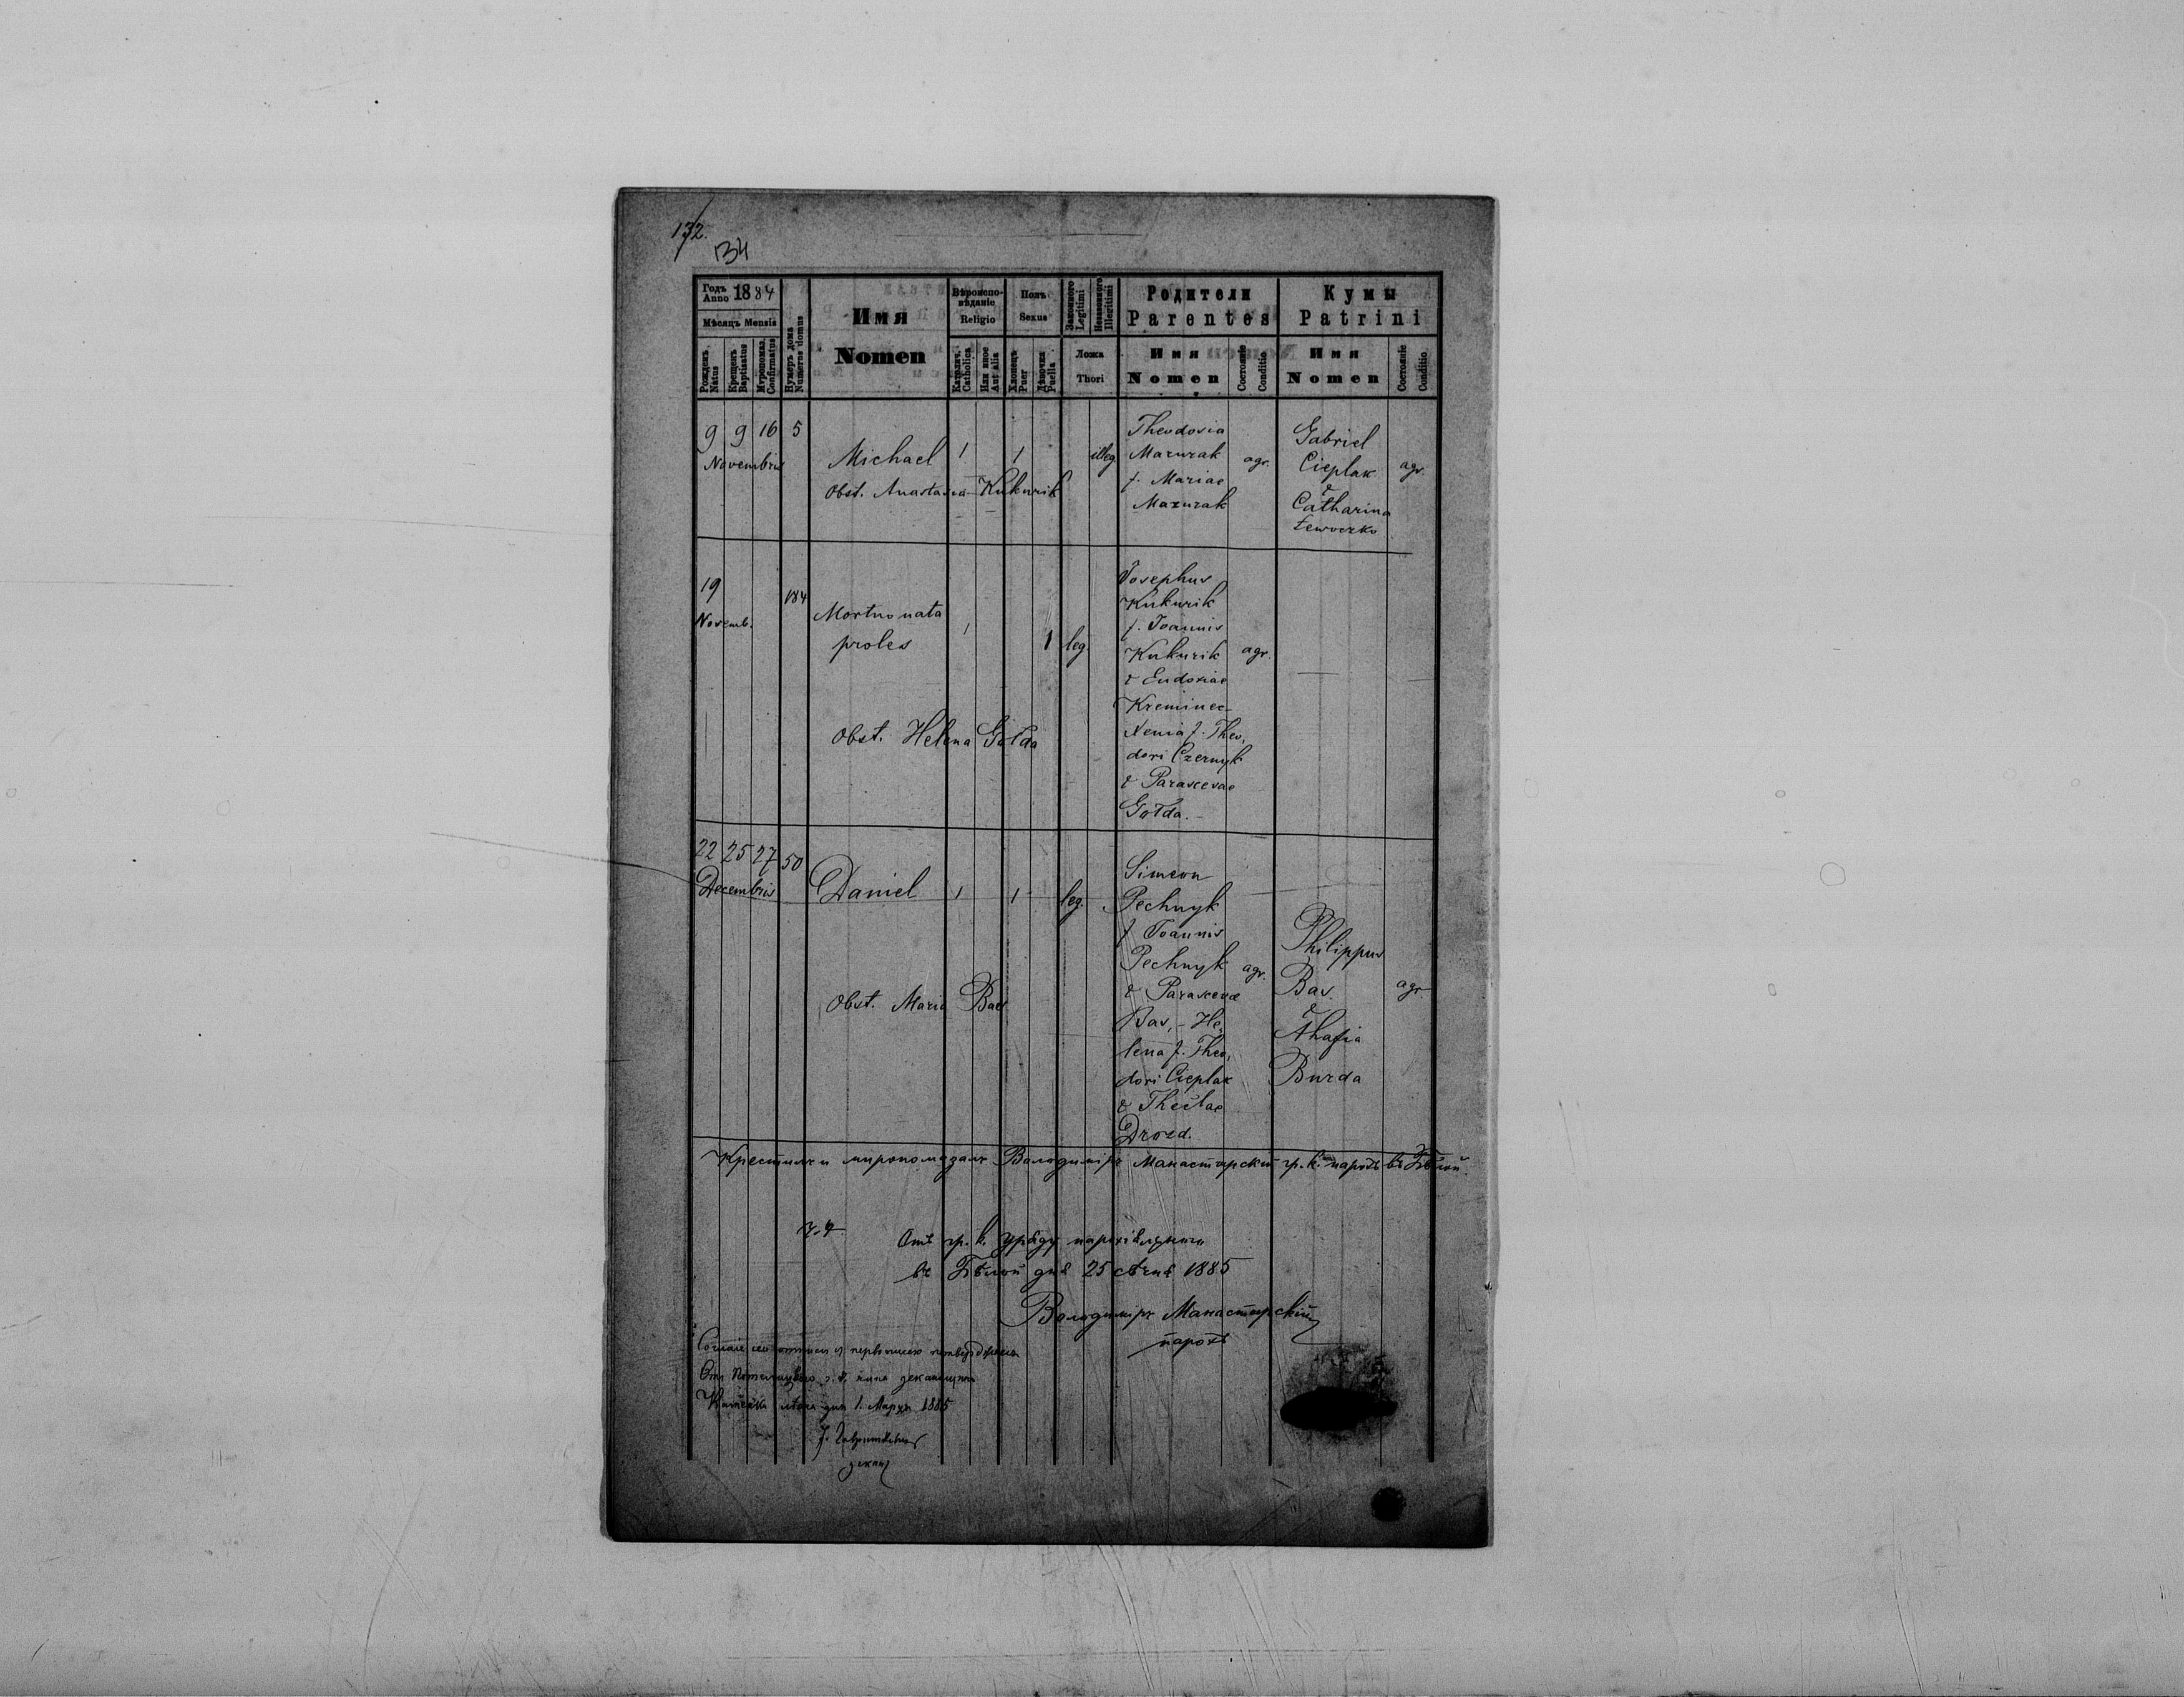 132.
134
Годъ Anno 1884
Мѣсяцъ Mensis
Рожденъ Natus
Крещенъ Baptisatus
Мѵропомаз. Confirmatus
Нумеръ дома Numerus domus
Имя
Nomen
Вѣроисповѣданіе
Religio
Католич. Catholica
Или иное Aut alia
Полъ
Sexus
Хлопецъ Puer
Дѣвочка Puella
Законного Legitimi
Незаконного Illegitimi
Ложа
Thori
Родители
Parentes
Имя
Nomen
Состояніе Conditio
Кумы
Patrini
Имя
Nomen
Состояніе Conditio
9 9 16 5
Novembris
Michael 1 1 illeg.
Obst. Anastasia Kukurik
Theodosia
Mazurak agr.
f. Mariae
Mazurak
Gabriel
Cieplak agr.
&
Catharina
19 184
Novemb.
Mortuo nata
proles 1 1 leg.
Obst. Helena Gołda
Josephus
Kukurik
f. Joannis
Kukurik agr.
& Eudoxiae
Kreminec
Xenia f. Theo,
dori Czernyk
& Parascevae
Gołda.
22 25 27 50
Decembris
Daniel 1 1 leg.
Obst. Maria Bas
Simeon
Pechnyk
f Joannis
Pechnyk agr.
& Parascevae
Bas, - He,
lena f. Theo,
dori Cieplak
& Theclae
Drozd.
Philippus
Bas. agr.
&
Ahafia
Burda
Крестилъ и миропомазалъ Володиміръ Манастырскій гр. к. парохъ въ Бѣлой
Ч. 4
Отъ гр. к. уряду парохіяльного
въ Бѣлой дня 25 сѣчня 1885
Володиміръ Манастырскій
парохъ
дня 1. Марта 1885
деканъ